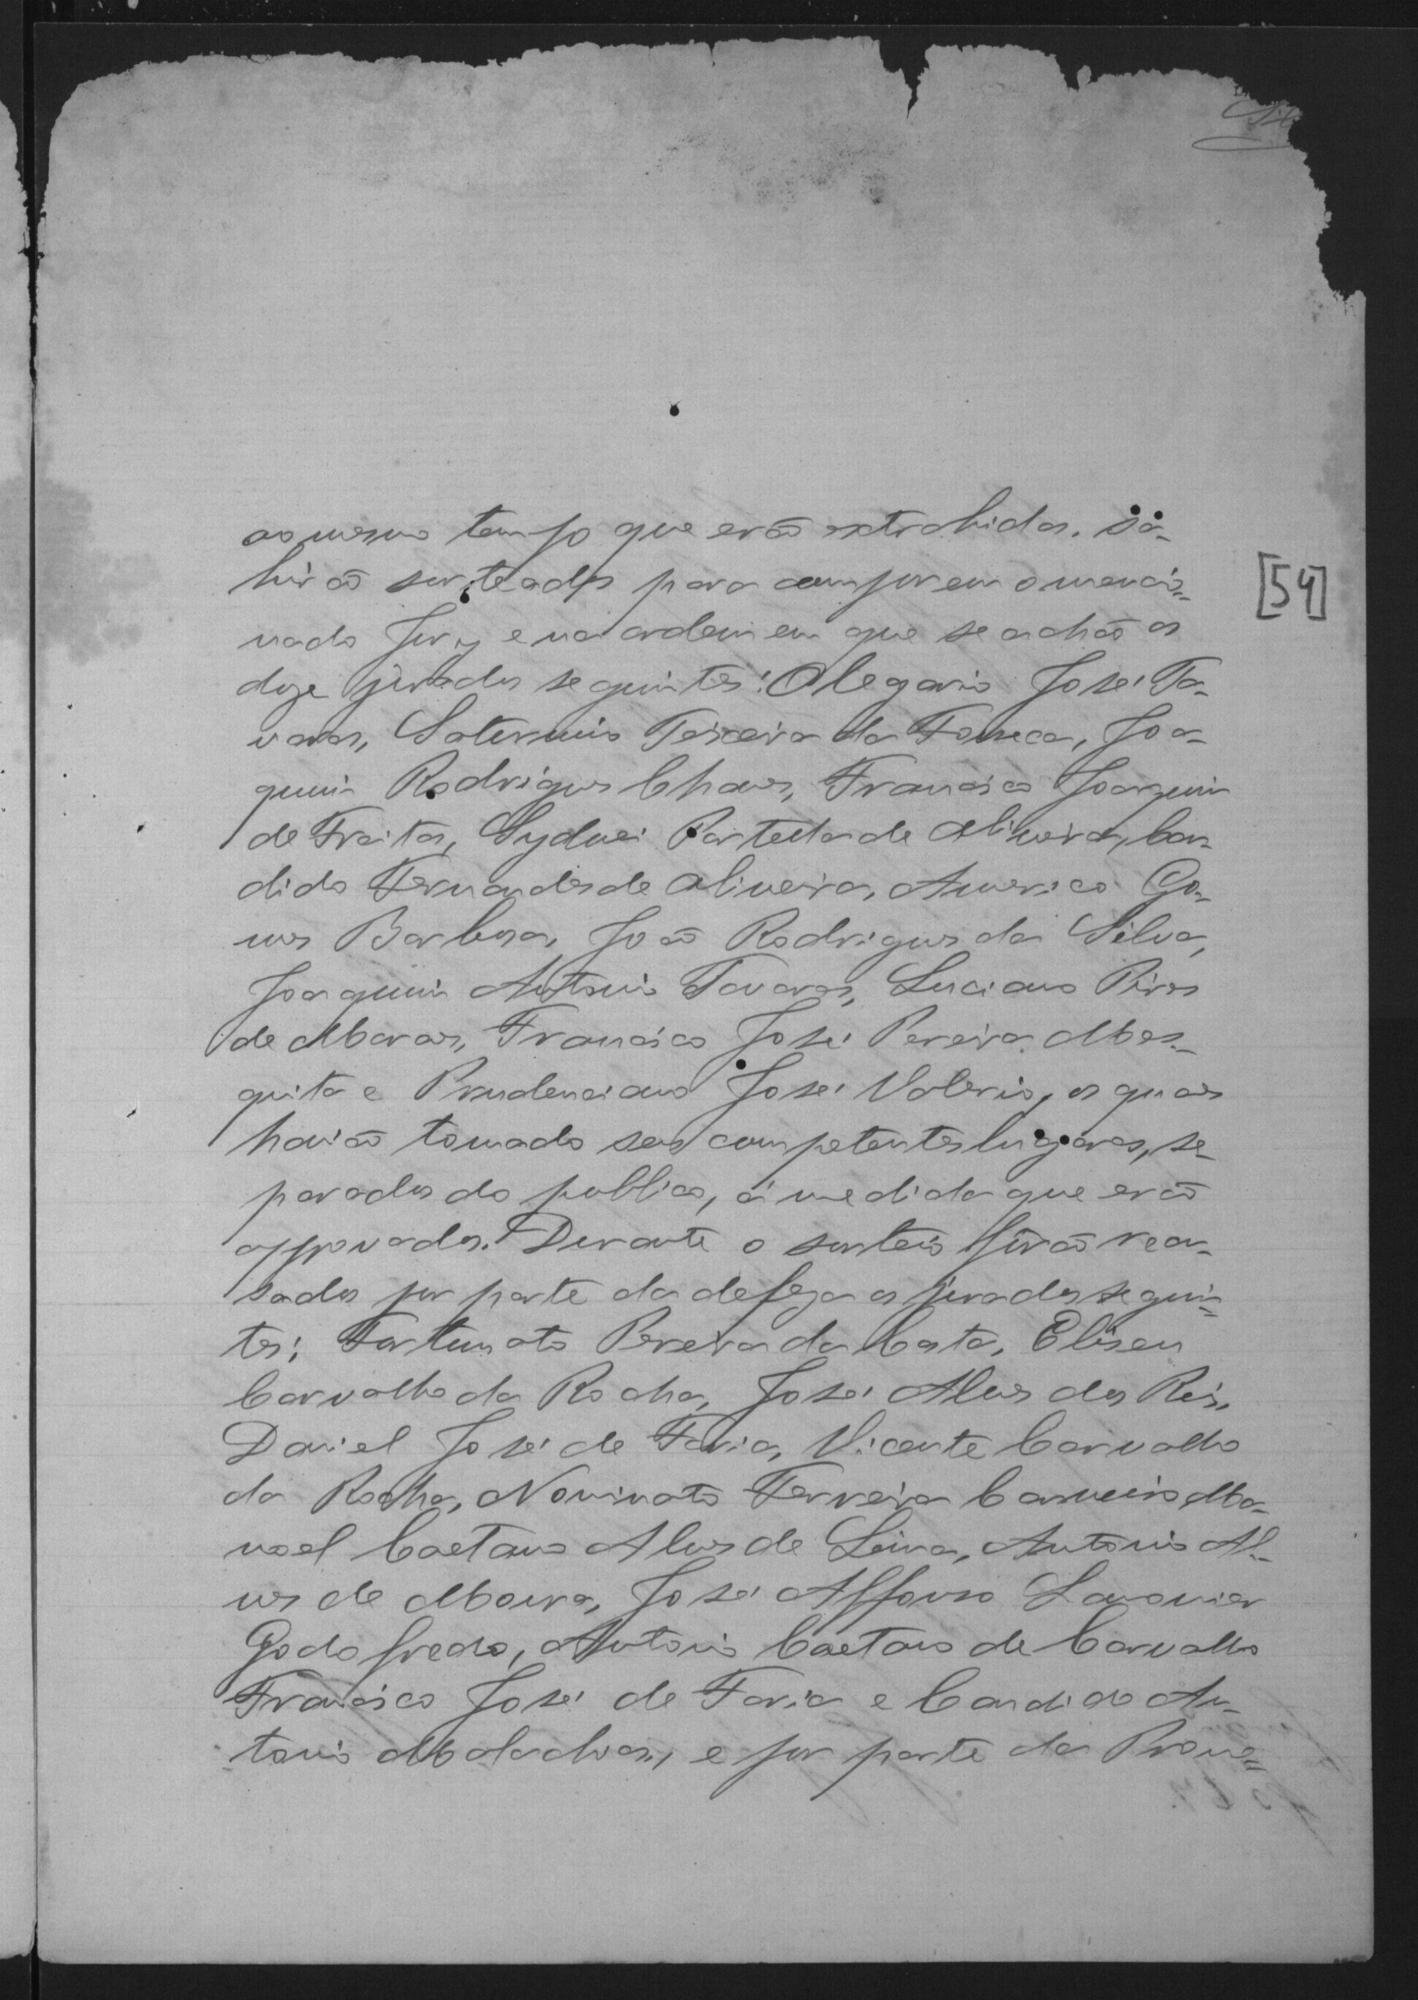 [54]
ao mesmo tempo que erão extrahidas. Sa-
hirão sorteados para comporem o mencio-
nado Jury e na ordem em que se achão os
doze jurados seguintes: Olegario José Ta-
vares, Saternino Teixeira da Fonseca, Joa-
quim Rodrigues Chaves, Francisco Joaquim
de Freitas, Sydnei Portella de Oliveira, Can-
dido Fernandes de Oliveira, Americo Go-
mes Barbosa, João Rodrigues da Silva,
Joaquim Antonio Tavares, Luciano Pires
de Moraes, Francisco José Pereira Mes-
quita e Prudenciano José Valerio, os quaes
havião tomado seus competentes lugares, se-
parados do publico, á medida que erão
approvados. Durante o sorteio forão recu-
sados por parte da defeza os jurados seguin-
tes: Fortunato Pereira da Costa, Eliseu
Carvalho da Rocha, José Alves dos Reis,
Daniel José de Faria, Vicente Carvalho
da Rocha, Nominato Ferreira Carneiro, Ma-
noel Caetano Alves de Lima, Antonio Al-
ves de Moura, José Affonso Lamounier
Godofredo, Antonio Caetano de Carvalho
Francisco José de Faria e Candido An-
tonio Malachias, e por parte da Promo-